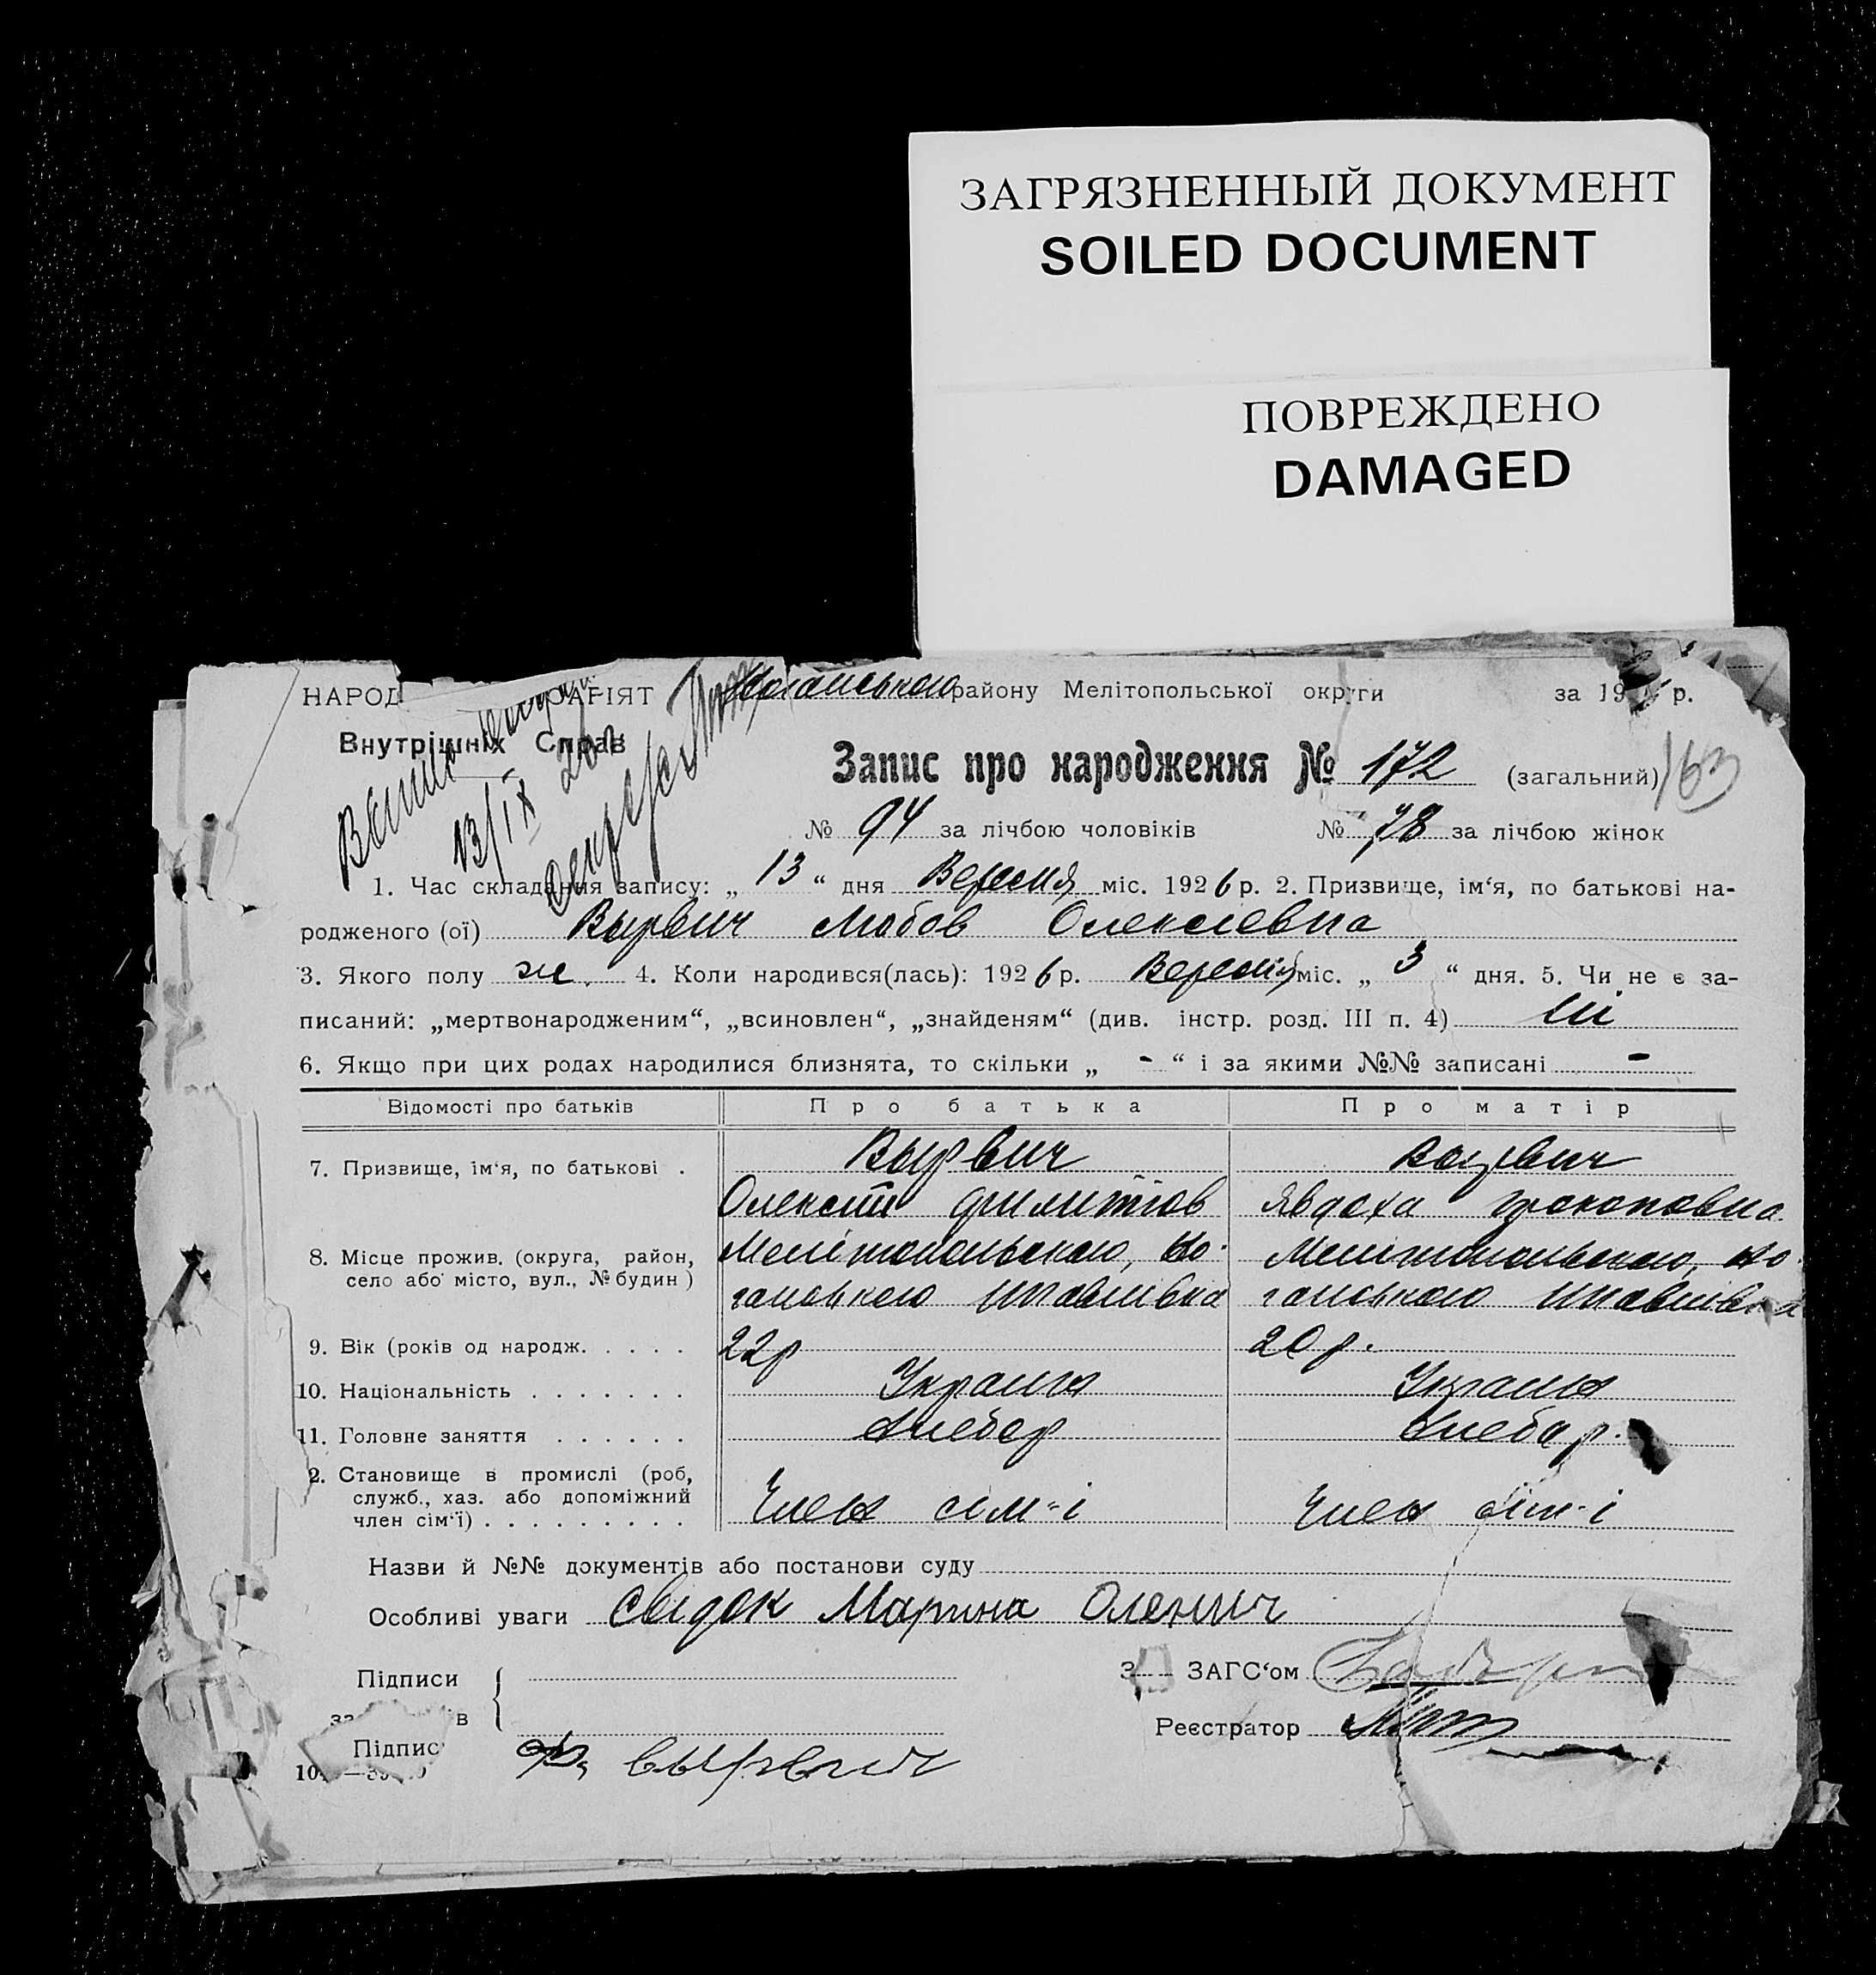 ЗАГРЯЗНЕННЫЙ ДОКУМЕНТ
SOILED DOCUMENT
ПОВРЕЖДЕНО
DAMAGED
району Мелітопольської округи за 19 р.
Внутрішніх Справ
13/IX
Запис про народження № 172 (загальний) 163
№ 94 за лічбою чоловіків № 78 за лічбою жінок
1. Час складання запису: „ 13 “ дня Вересня міс. 1926 р. 2. Призвище, ім‘я, по батькові на-
родженого (ої) Вырвич Любов Олексіевна
3. Якого полу ж. 4. Коли народився(лась): 1926 р. Вересня міс. „ 3 “ дня. 5. Чи не є за-
писаний: „мертвонародженим“, „всиновлен“, „знайденям“ (див. інстр. розд. III п. 4) ні
6. Якщо при цих родах народилися близнята, то скільки „ - “ і за якими №№ записані -
Відомості про батьків Про батька Про матір
7. Призвище, ім‘я, по батькові . Вырвич Вырвич
Олексій Филиппов Явдоха Прокоповна
8. Місце прожив. (округа, район, Мелітопольскою, Но- Мелітопольскою, Но-
село або місто, вул., № будин) ганською ганською
9. Вік (років од народж. . . . . 22р 20р.
10. Національність . . . . . . . Украин Украин
11. Головне заняття . . . . . . Хлебор Хлебор.
2. Становище в промислі (роб,
служб., хаз. або допоміжний Член сім-і Член сім-і
член сім‘ї) . . . . . . . . .
Назви й №№ документів або постанови суду
Особливі уваги Свідок Марина Оленич
Підписи ЗАГС‘ом
Реєстратор
Підпис вырвич